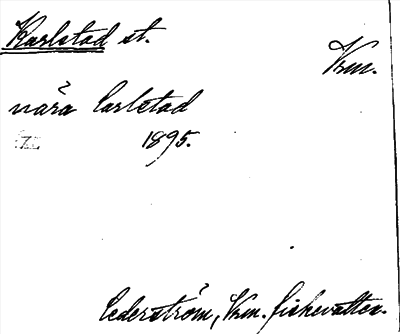 Karlstad st.
Vrm.
nära Carlstad
1895.
Cederström, Vrm. fiskevatten.